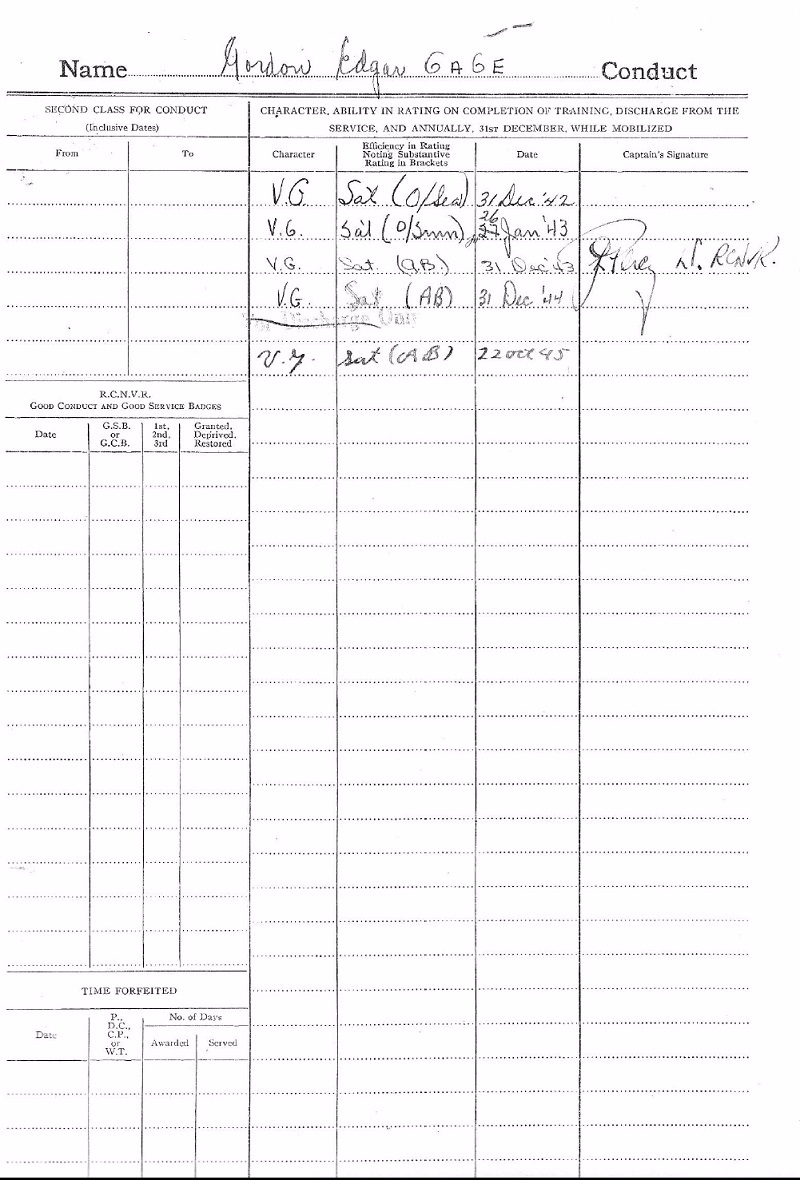 Name Gordon Edgar GAGE Conduct
SECOND CLASS FOR CONDUCT
(Inclusive Dates)
From To
CHARACTER, ABILITY IN RATING ON COMPLETION OF TRAINING, DISCHARGE FROM THE
SERVICE, AND ANNUALLY, 31ST DECEMBER, WHILE MOBILIZED
Character
Efficiency in Rating
Noting Substantive
Rating in Brackets
Date
Captain's Signature
V.G. Sat (O/Sea) 31 Dec '42
V.G. Sat (O/Smn) 26 Jan '43
V.G. Sat. (A.B.) 31 Dec '43
Lt. RCNVR.
V.G. Sat (AB) 31 Dec '44
Discharge
V.G. Sat (AB) 22 oct 45
R.C.N.V.R.
GOOD CONDUCT AND GOOD SERVICE BADGES
Date
G.S.B.
or
G.C.B.
1st,
2nd,
3rd
Granted,
Deprived,
Restored
TIME FORFEITED
Date
P.,
D.C.,
C.P.,
or
W.T.
No. of Days
Awarded Served